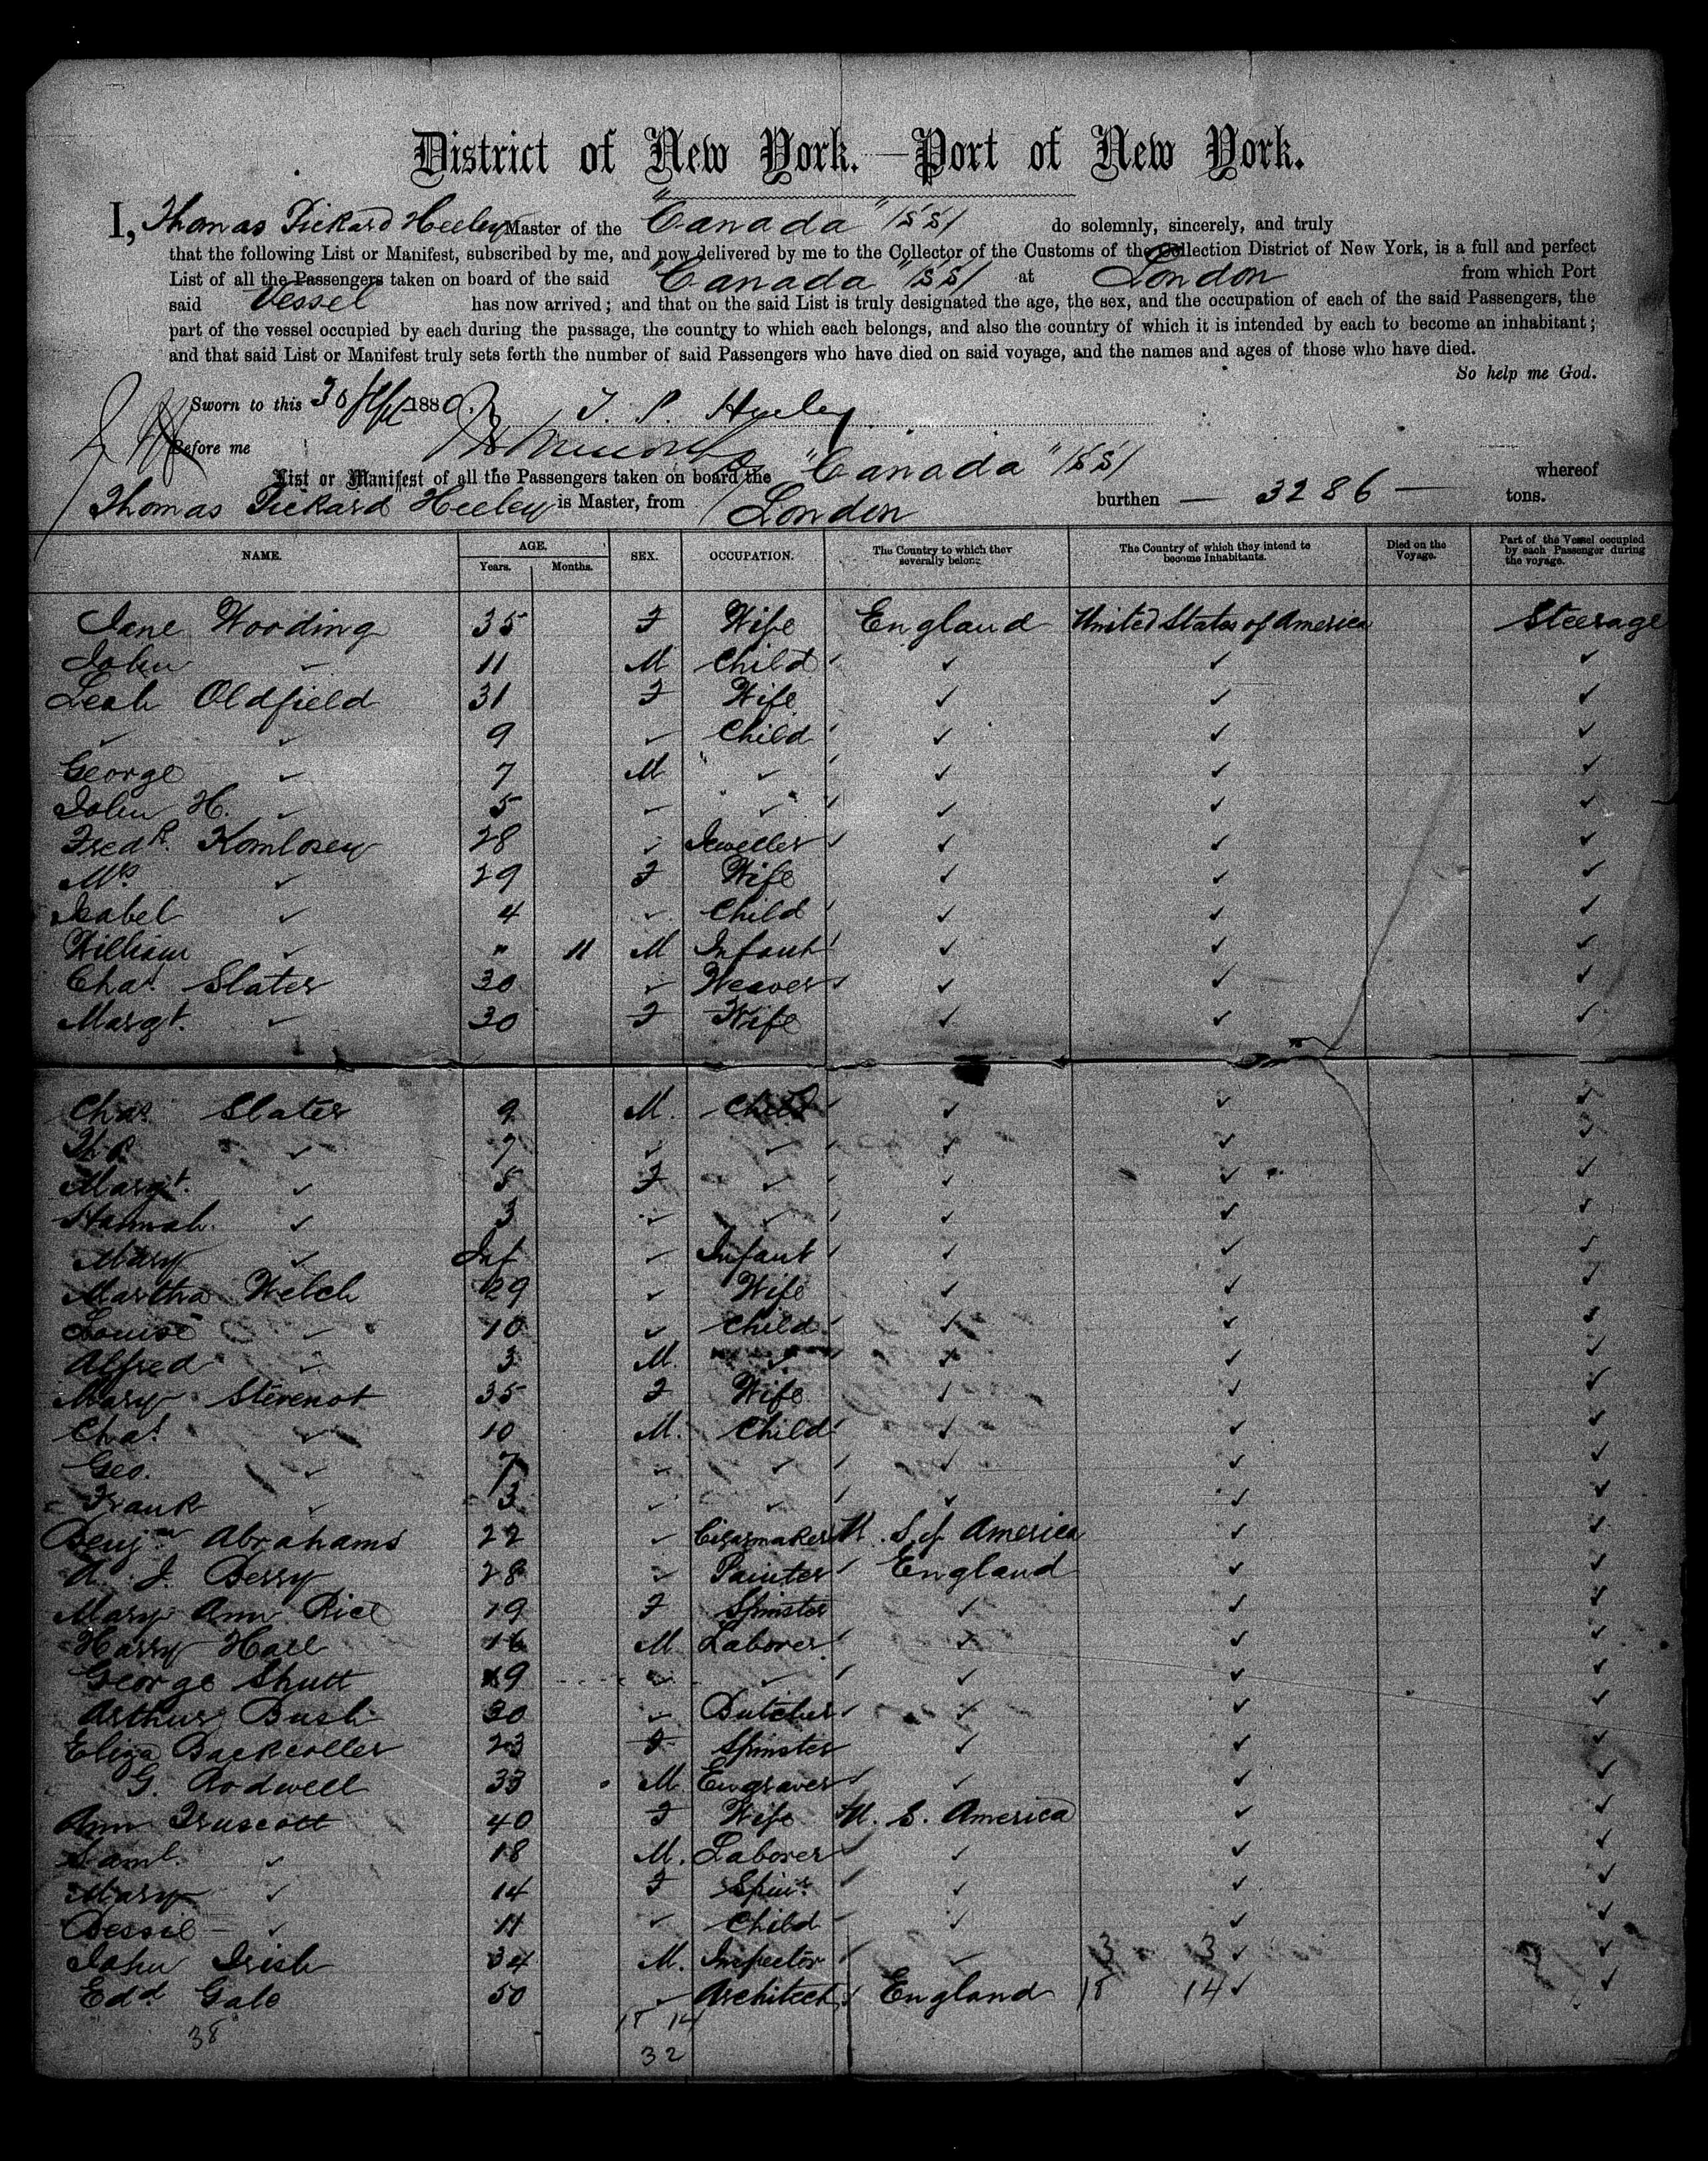 District of New York.—Port of New York.
I, Thomas Pickard Heeley Master of the "Canada" (SS) do solemnly, sincerely, and truly
that the following List or Manifest, subscribed by me, and now delivered by me to the Collector of the Customs of the Collection District of New York, is a full and perfect
List of all the Passengers taken on board of the said "Canada" (SS) at London from which Port
said Vessel has now arrived; and that on the said List is truly designated the age, the sex, and the occupation of each of the said Passengers, the
part of the vessel occupied by each during the passage, the country to which each belongs, and also the country of which it is intended by each to become an inhabitant;
and that said List or Manifest truly sets forth the number of said Passengers who have died on said voyage, and the names and ages of those who have died.
So help me God.
Sworn to this 30 1880. T. P. Heeley
Before me
List or Manifest of all the Passengers taken on board the "Canada" (SS) whereof
Thomas Pickard Heeley is Master, from London burthen — 3286 — tons.
NAME. AGE. Years. Months. SEX. OCCUPATION. The Country to which they severally belong. The Country of which they intend to become Inhabitants. Died on the Voyage. Part of the Vessel occupied by each Passenger during the voyage.
Jane Wooding 35 F Wife England United States of America Steerage
John ✓ 11 M Child ✓ ✓ ✓
Leah Oldfield 31 F Wife ✓ ✓ ✓
✓ ✓ 9 ✓ Child ✓ ✓ ✓
George ✓ 7 M " ✓ ✓ ✓ ✓
John H. ✓ 5 ✓ ✓ ✓ ✓ ✓
Fredk. Komlosey 28 ✓ Jeweller ✓ ✓ ✓
Mrs ✓ 29 F Wife ✓ ✓ ✓
Isabel ✓ 4 ✓ Child ✓ ✓ ✓
William ✓ " 11 M Infant ✓ ✓ ✓
Chas. Slater 30 ✓ Weaver ✓ ✓ ✓
Margt. ✓ 30 F Wife ✓ ✓ ✓
Chas. Slater 9 M. Child ✓ ✓ ✓
✓ 7 ✓ ✓ ✓ ✓ ✓
Margt. ✓ 5 F ✓ ✓ ✓ ✓
Hannah ✓ 3 ✓ ✓ ✓ ✓ ✓
Mary ✓ Inf ✓ Infant ✓ ✓ ✓
Martha Welch 29 ✓ Wife ✓ ✓ ✓
Louise ✓ 10 ✓ Child ✓ ✓ ✓
Alfred ✓ 3 M. ✓ ✓ ✓ ✓
Mary Stevenot 35 F Wife ✓ ✓ ✓
Chas. ✓ 10 M. Child ✓ ✓ ✓
Geo. ✓ 7 ✓ ✓ ✓ ✓ ✓
Frank ✓ 3 ✓ ✓ ✓ ✓ ✓
Benjn. Abrahams 22 ✓ Cigarmaker U. S. of America ✓ ✓
A. J. Berry 28 ✓ Painter England ✓ ✓
Mary Ann Rice 19 F Spinster ✓ ✓ ✓
Harry Hall 16 M. Laborer ✓ ✓ ✓
George Shutt 19 ✓ ✓ ✓ ✓ ✓
Arthur Bush 30 ✓ Butcher ✓ ✓ ✓
Eliza 23 F Spinster ✓ ✓ ✓
G. Rodwell 33 M. Engraver ✓ ✓ ✓
Ann Truscott 40 F Wife U. S. America ✓ ✓
Saml. ✓ 18 M. Laborer ✓ ✓ ✓
Mary ✓ 14 F Spinr. ✓ ✓ ✓
Bessie ✓ 11 ✓ Child ✓ ✓ ✓
John Irish 34 M. Inspector ✓ 3 3 ✓ ✓
Edd. Gale 50 ✓ Architect England 18 14 ✓ ✓
38 18 14
32